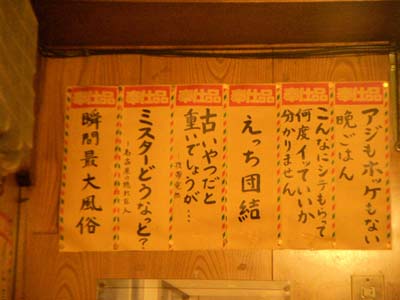 奉仕品
アジもホッケもない
晩ごはん
奉仕品
こんなにシテもらって
何度イッていいか
分かりません
奉仕品
えっち団結
奉仕品
古いやつだと
重いでしょうが…
奉仕品
ミスターどうなっと?
奉仕品
瞬間最大風俗